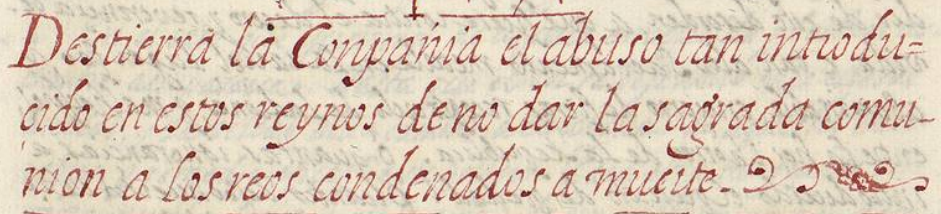 Destierra la Conpañia el abuso tan introdu=
cido en estos reynos de no dar la sagrada comu-
nion a los reos condenados a muerte.